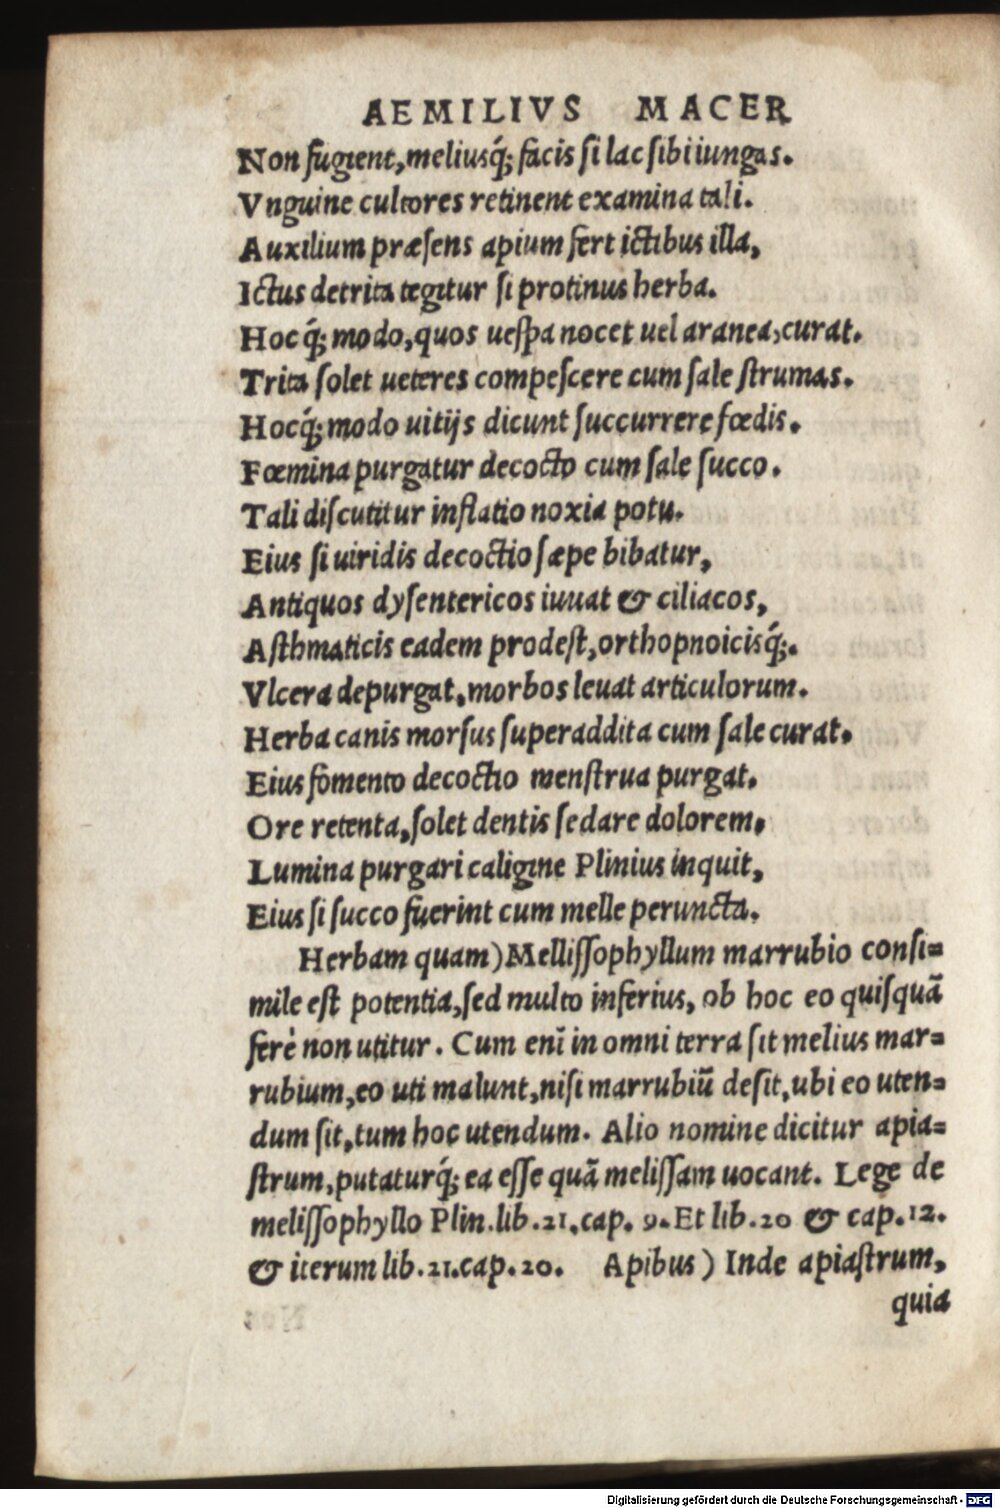 AEMILIVS MACER
Non fugient, meliusq́; facis si lac sibi iungas.
Vnguine cultores retinent examina tali.
Auxilium præsens apium fert ictibus illa,
Ictus detrita tegitur si protinus herba.
Hoc q́; modo, quos uespa nocet uel aranea, curat.
Trita solet ueteres compescere cum sale strumas.
Hocq́; modo uitijs dicunt succurrere fœdis.
Fœmina purgatur decocto cum sale succo.
Tali discutitur inflatio noxia potu.
Eius si uiridis decoctio sæpe bibatur,
Antiquos dysentericos iuuat & ciliacos,
Asthmaticis eadem prodest, orthopnoicisq́;.
Vlcera depurgat, morbos leuat articulorum.
Herba canis morsus superaddita cum sale curat.
Eius fomento decoctio menstrua purgat.
Ore retenta, solet dentis sedare dolorem,
Lumina purgari caligine Plinius inquit,
Eius si succo fuerint cum melle peruncta.
Herbam quam) Mellissophyllum marrubio consi=
mile est potentia, sed multo inferius, ob hoc eo quisquã
ferè non utitur. Cum enĩ in omni terra sit melius mar=
rubium, eo uti malunt, nisi marrubiũ desit, ubi eo uten=
dum sit, tum hoc utendum. Alio nomine dicitur apia=
strum, putaturq́; ea esse quã melissam uocant. Lege de
melissophyllo Plin. lib. 21. cap. 9. Et lib. 20 & cap. 12.
& iterum lib. 21. cap. 20. Apibus ) Inde apiastrum,
quia
Digitalisierung gefördert durch die Deutsche Forschungsgemeinschaft - DFG